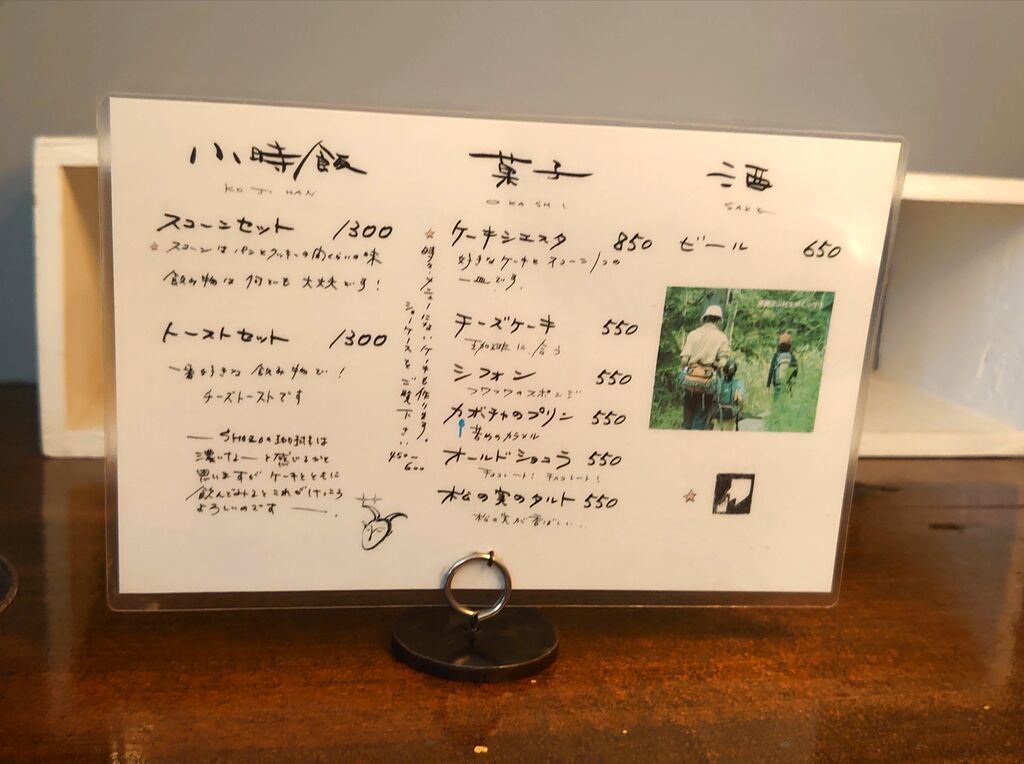 小時飯
KOJIHAN
スコーンセット 1300
☆ スコーンはパンとクッキーの間くらいの味
飲み物は何でも大丈夫です!
トーストセット 1300
一番好きな飲み物で!
チーズトーストです
SHOZOの珈琲は
濃いなーと感じるかと
思いますがケーキとともに
飲んでみるとこれがけっこう
よろしいのです
菓子
OKASHI
☆ ケーキシエスタ 850
好きなケーキとスコーン1つの
一皿です.
チーズケーキ 550
珈琲に合う
シフォン 550
フワフワのスポンジ
カボチャのプリン 550
苦めのカラメル
オールドショコラ 550
チョコレート!チョコレート!
松の実のタルト 550
松の実が香ばしい...
時々メニューにないケーキも作ります。
ショーケースをご覧下さい
450〜
600
酒
SAKE
ビール 650